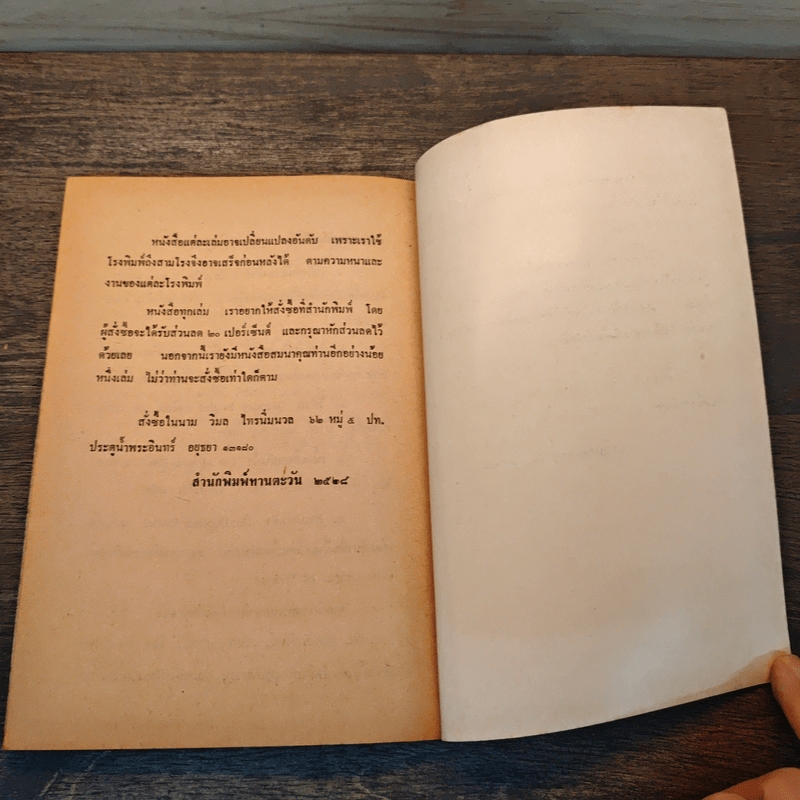 หนังสือแต่ละเล่มอาจเปลี่ยนแปลงอันดับ เพราะเราใช้
โรงพิมพ์ถึงสามโรงจึงอาจเสร็จก่อนหลังได้ ตามความหนาและ
งานของแต่ละโรงพิมพ์
หนังสือทุกเล่ม เราอยากให้สั่งซื้อที่สำนักพิมพ์ โดย
ผู้สั่งซื้อจะได้รับส่วนลด ๒๐ เปอร์เซ็นต์ และกรุณาหักส่วนลดไว้
ด้วยเลย นอกจากนี้เรายังมีหนังสือสมนาคุณท่านอีกอย่างน้อย
หนึ่งเล่ม ไม่ว่าท่านจะสั่งซื้อเท่าใดก็ตาม
สั่งซื้อในนาม วิมล ไทรนิ่มนวล ๖๒ หมู่ ๕ ปท.
ประตูน้ำพระอินทร์ อยุธยา ๑๓๑๘๐
สำนักพิมพ์ทานตะวัน ๒๕๒๘